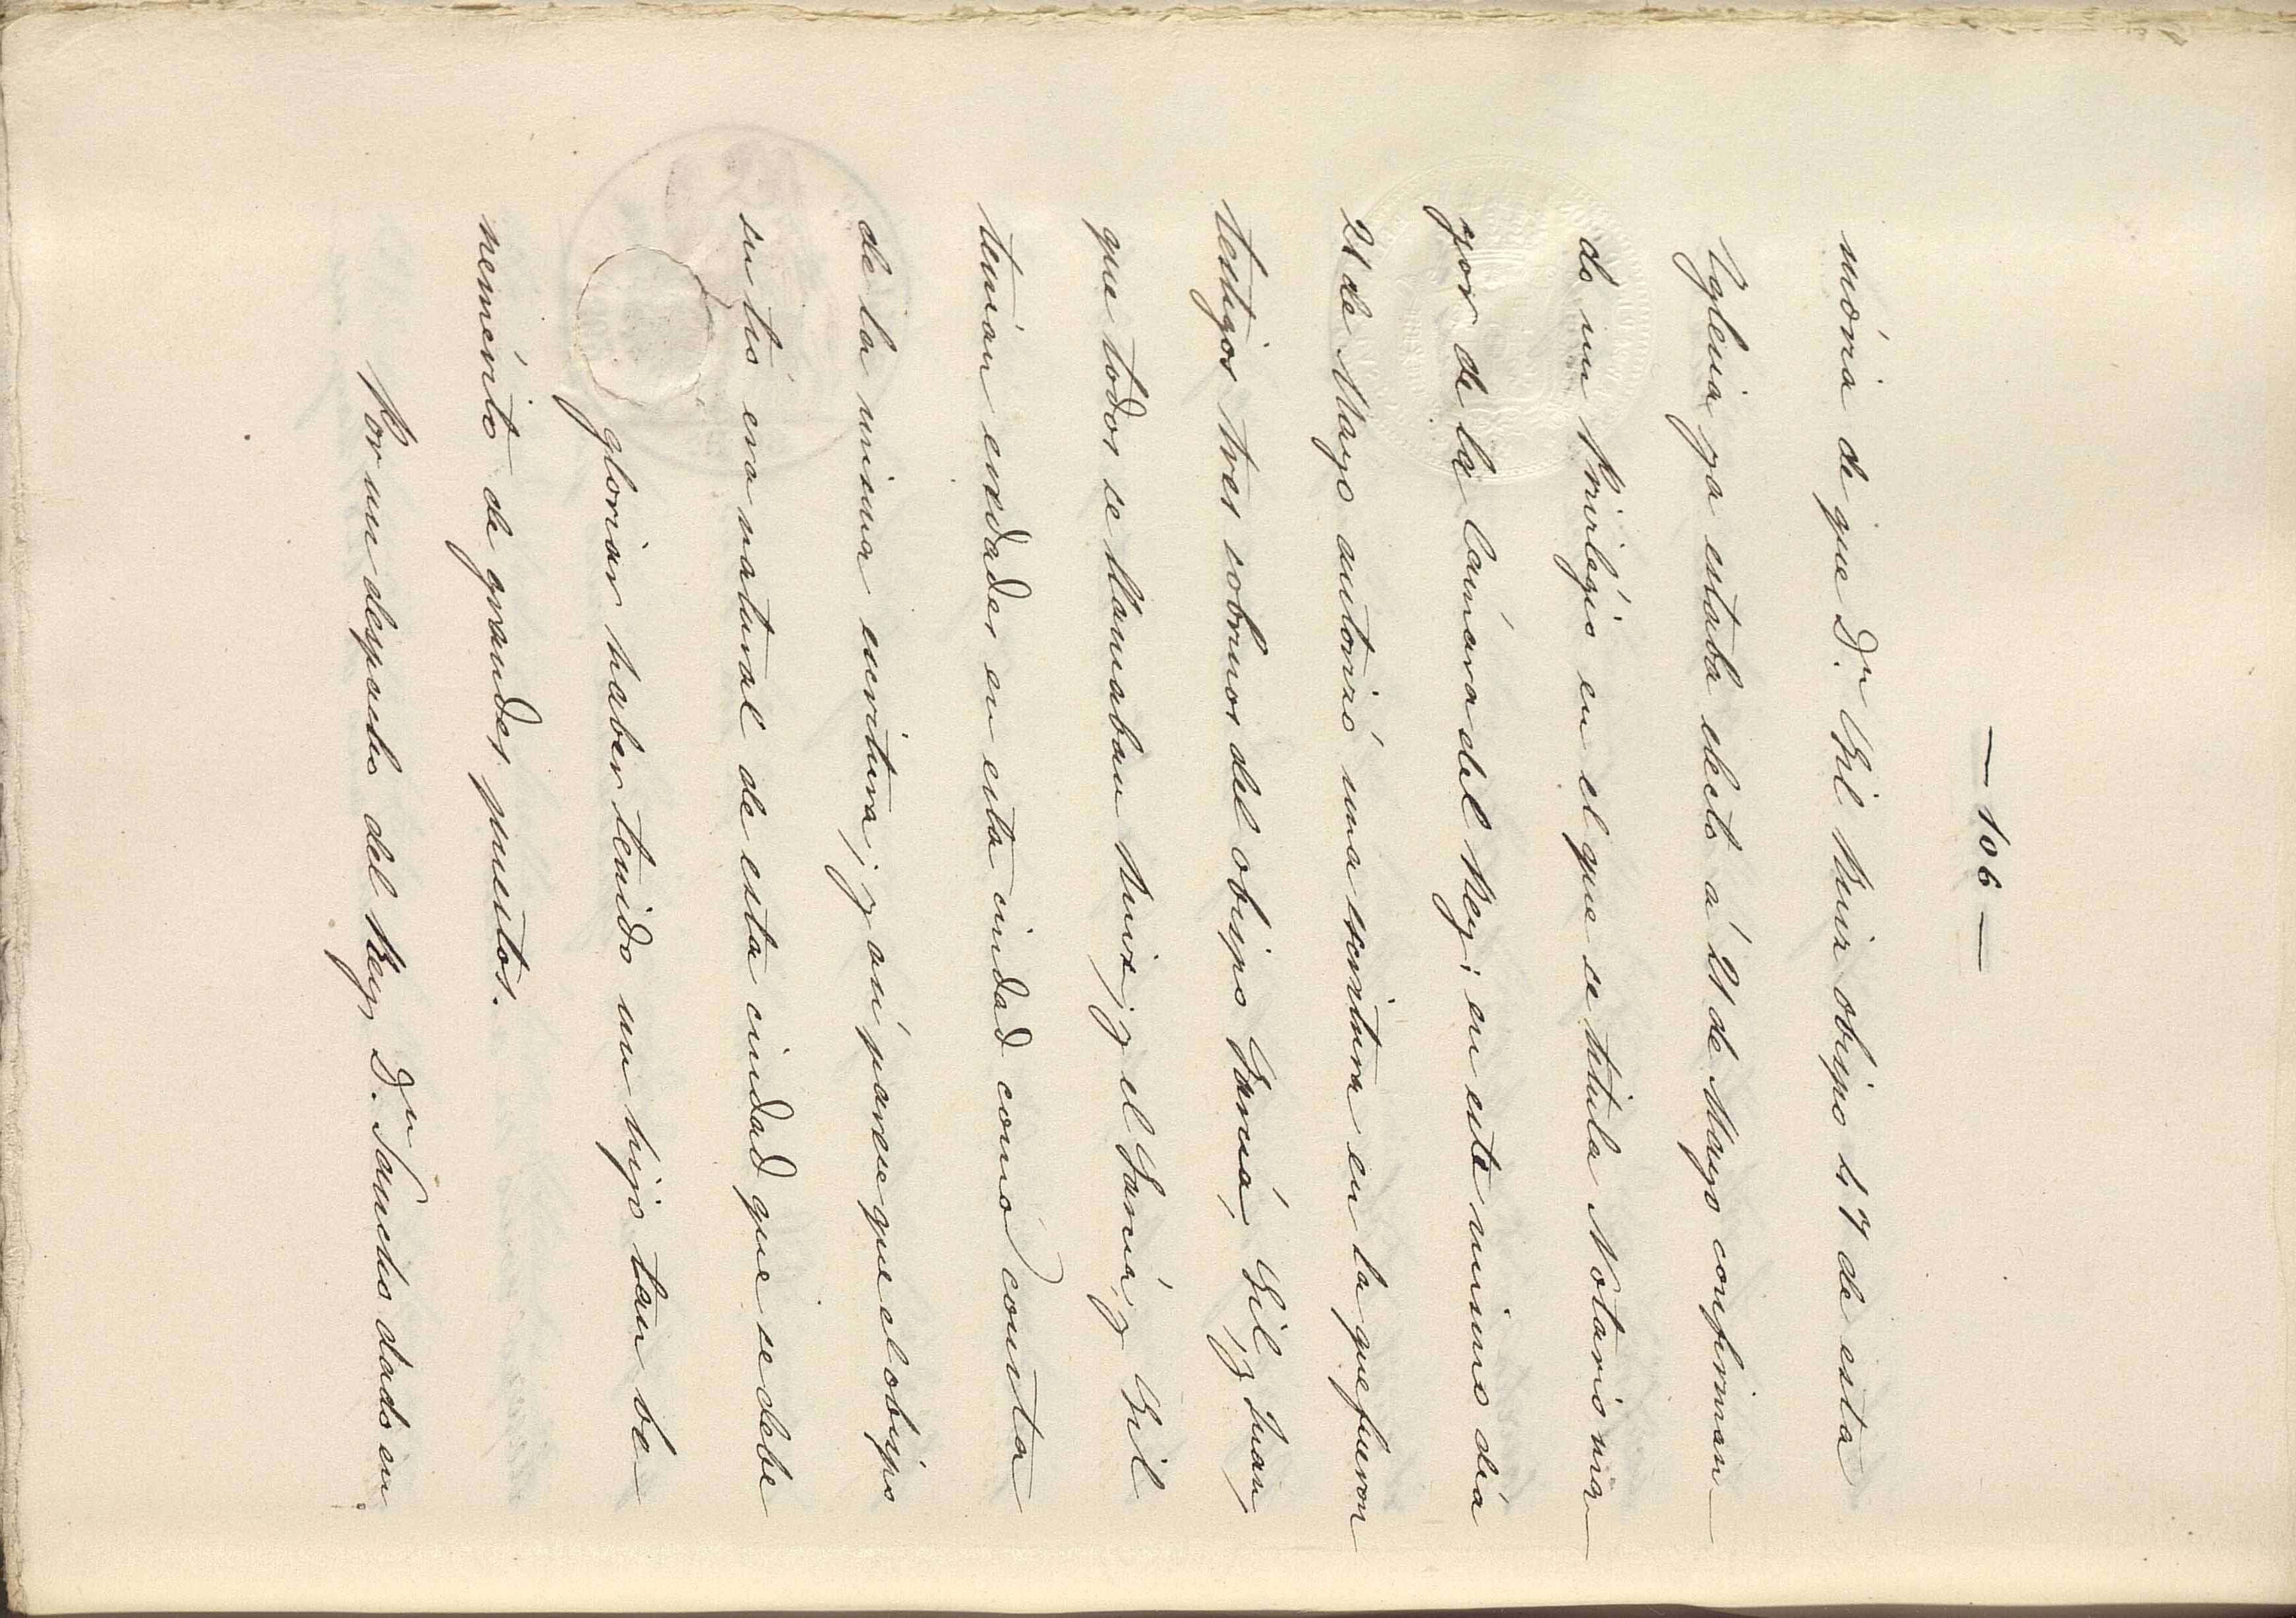 — 106 —
mória de que Dn. Gil Ruiz obispo 47 de esta
Yglesia ya estaba electo á 21 de Mayo confirman—
do un Privilégio en el que se titula Notario ma—
yor de la Cámara del Rey; en este mismo dia
21 de Mayo autorizó una escritura en la que fueron
testigos tres sobrinos del obispo Garciá, Gil, y Juan,
que todos se llamaban Ruiz, y el Garciá, y Gil
tenián eredades en esta ciudad como consta
de la misma escritura; y asi parece que el obispo
su tio era natural de esta ciudad que se debe
gloriar haber tenido un hijo tan be—
nemérito de grandes puestos.
Por un despacho del Rey Dn. Sancho dado en